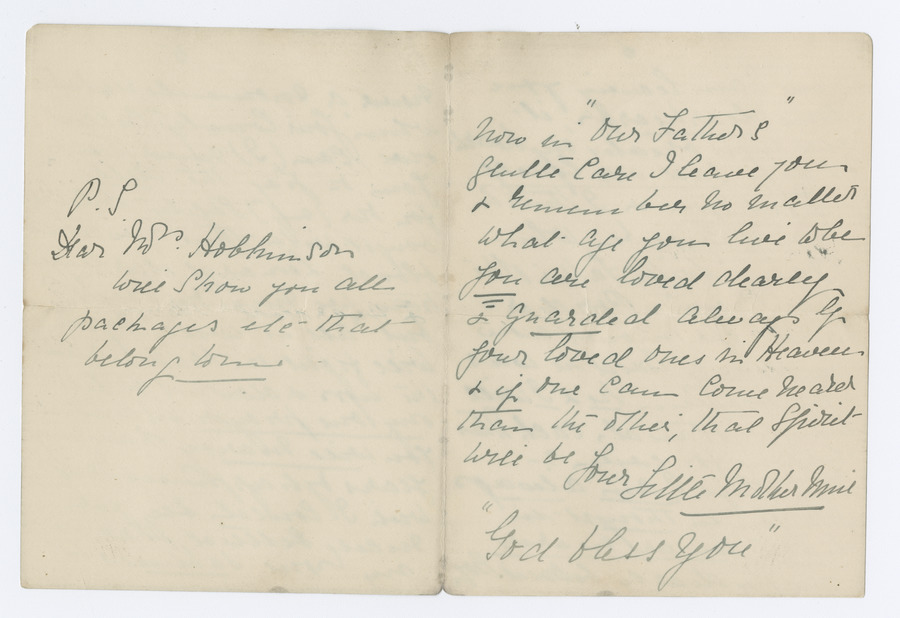 P.S
Dear Mrs. Hobkinson
will show you all
packages etc that
belong to me
Now in "Our Father's"
gentle care I leave you
& remember no matter
what age you live to be
you are loved dearly
& guarded always by
your loved ones in Heaven
& if one can come nearer
than the other, that spirit
will be your Little Mother Mine
"God bless you"